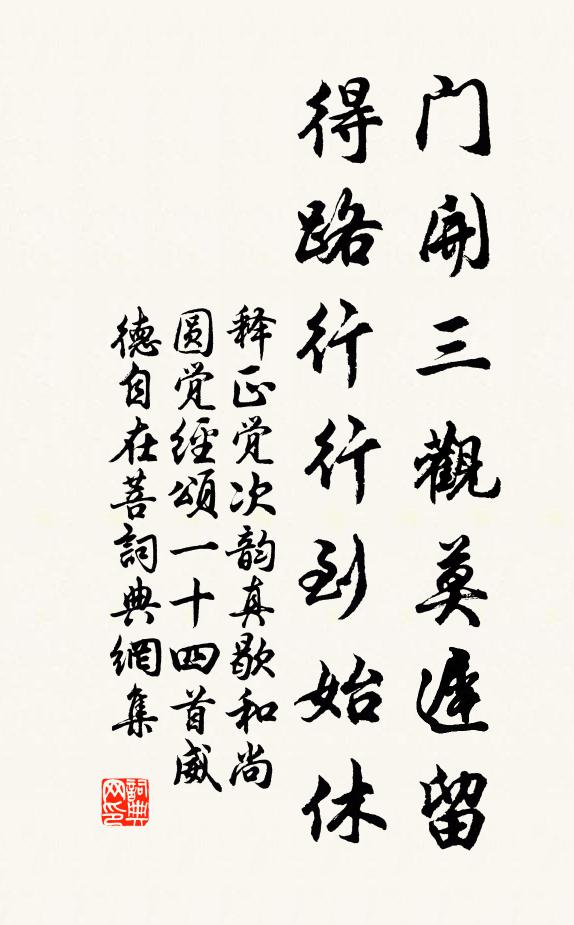 门開三觀莫遲留
得路行行到始休
释正觉次韵真歇和尚
圆觉經頌一十四首威
德自在菩詞典網集
詞典
网印